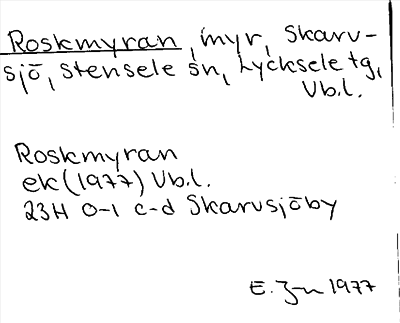 Roskmyran, myr, Skarv-
sjö, Stensele sn, Lycksele tg,
Vb.l.
Roskmyran
ek (1977) Vb.l.
23H 0-1 c-d Skarvsjöby
E. 1977